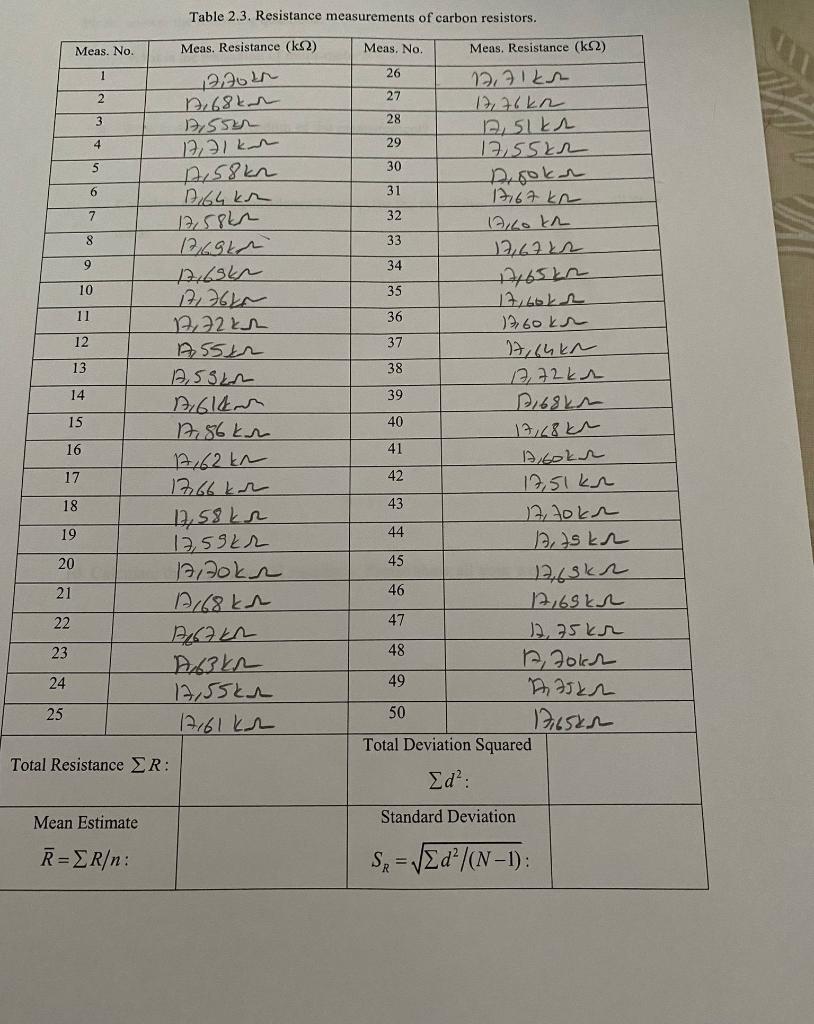 Table 2.3. Resistance measurements of carbon resistors.
Meas. No. Meas. Resistance (kΩ) Meas. No. Meas. Resistance (kΩ)
1 17,70kΩ 26 17,71kΩ
2 17,68kΩ 27 17,76kΩ
3 17,55kΩ 28 17,51kΩ
4 17,71kΩ 29 17,55kΩ
5 17,58kΩ 30
6 17,64kΩ 31 17,67kΩ
7 17,58kΩ 32 17,60kΩ
8 17,69kΩ 33 17,67kΩ
9 17,69kΩ 34 17,65kΩ
10 17,76kΩ 35 17,60kΩ
11 17,72kΩ 36 17,60kΩ
12 17,55kΩ 37 17,64kΩ
13 17,59kΩ 38 17,72kΩ
14 17,61kΩ 39 17,68kΩ
15 40 17,68kΩ
16 17,62kΩ 41 17,60kΩ
17 17,66kΩ 42 17,51kΩ
18 17,58kΩ 43 17,70kΩ
19 17,59kΩ 44 17,79kΩ
20 17,70kΩ 45 17,69kΩ
21 17,68kΩ 46 17,69kΩ
22 17,67kΩ 47 17,75kΩ
23 17,63kΩ 48 17,70kΩ
24 17,55kΩ 49 17,75kΩ
25 17,61kΩ 50 17,65kΩ
Total Resistance ∑R: Total Deviation Squared
∑d²:
Mean Estimate Standard Deviation
R̄ = ∑R/n: S_R = √∑d²/(N−1):